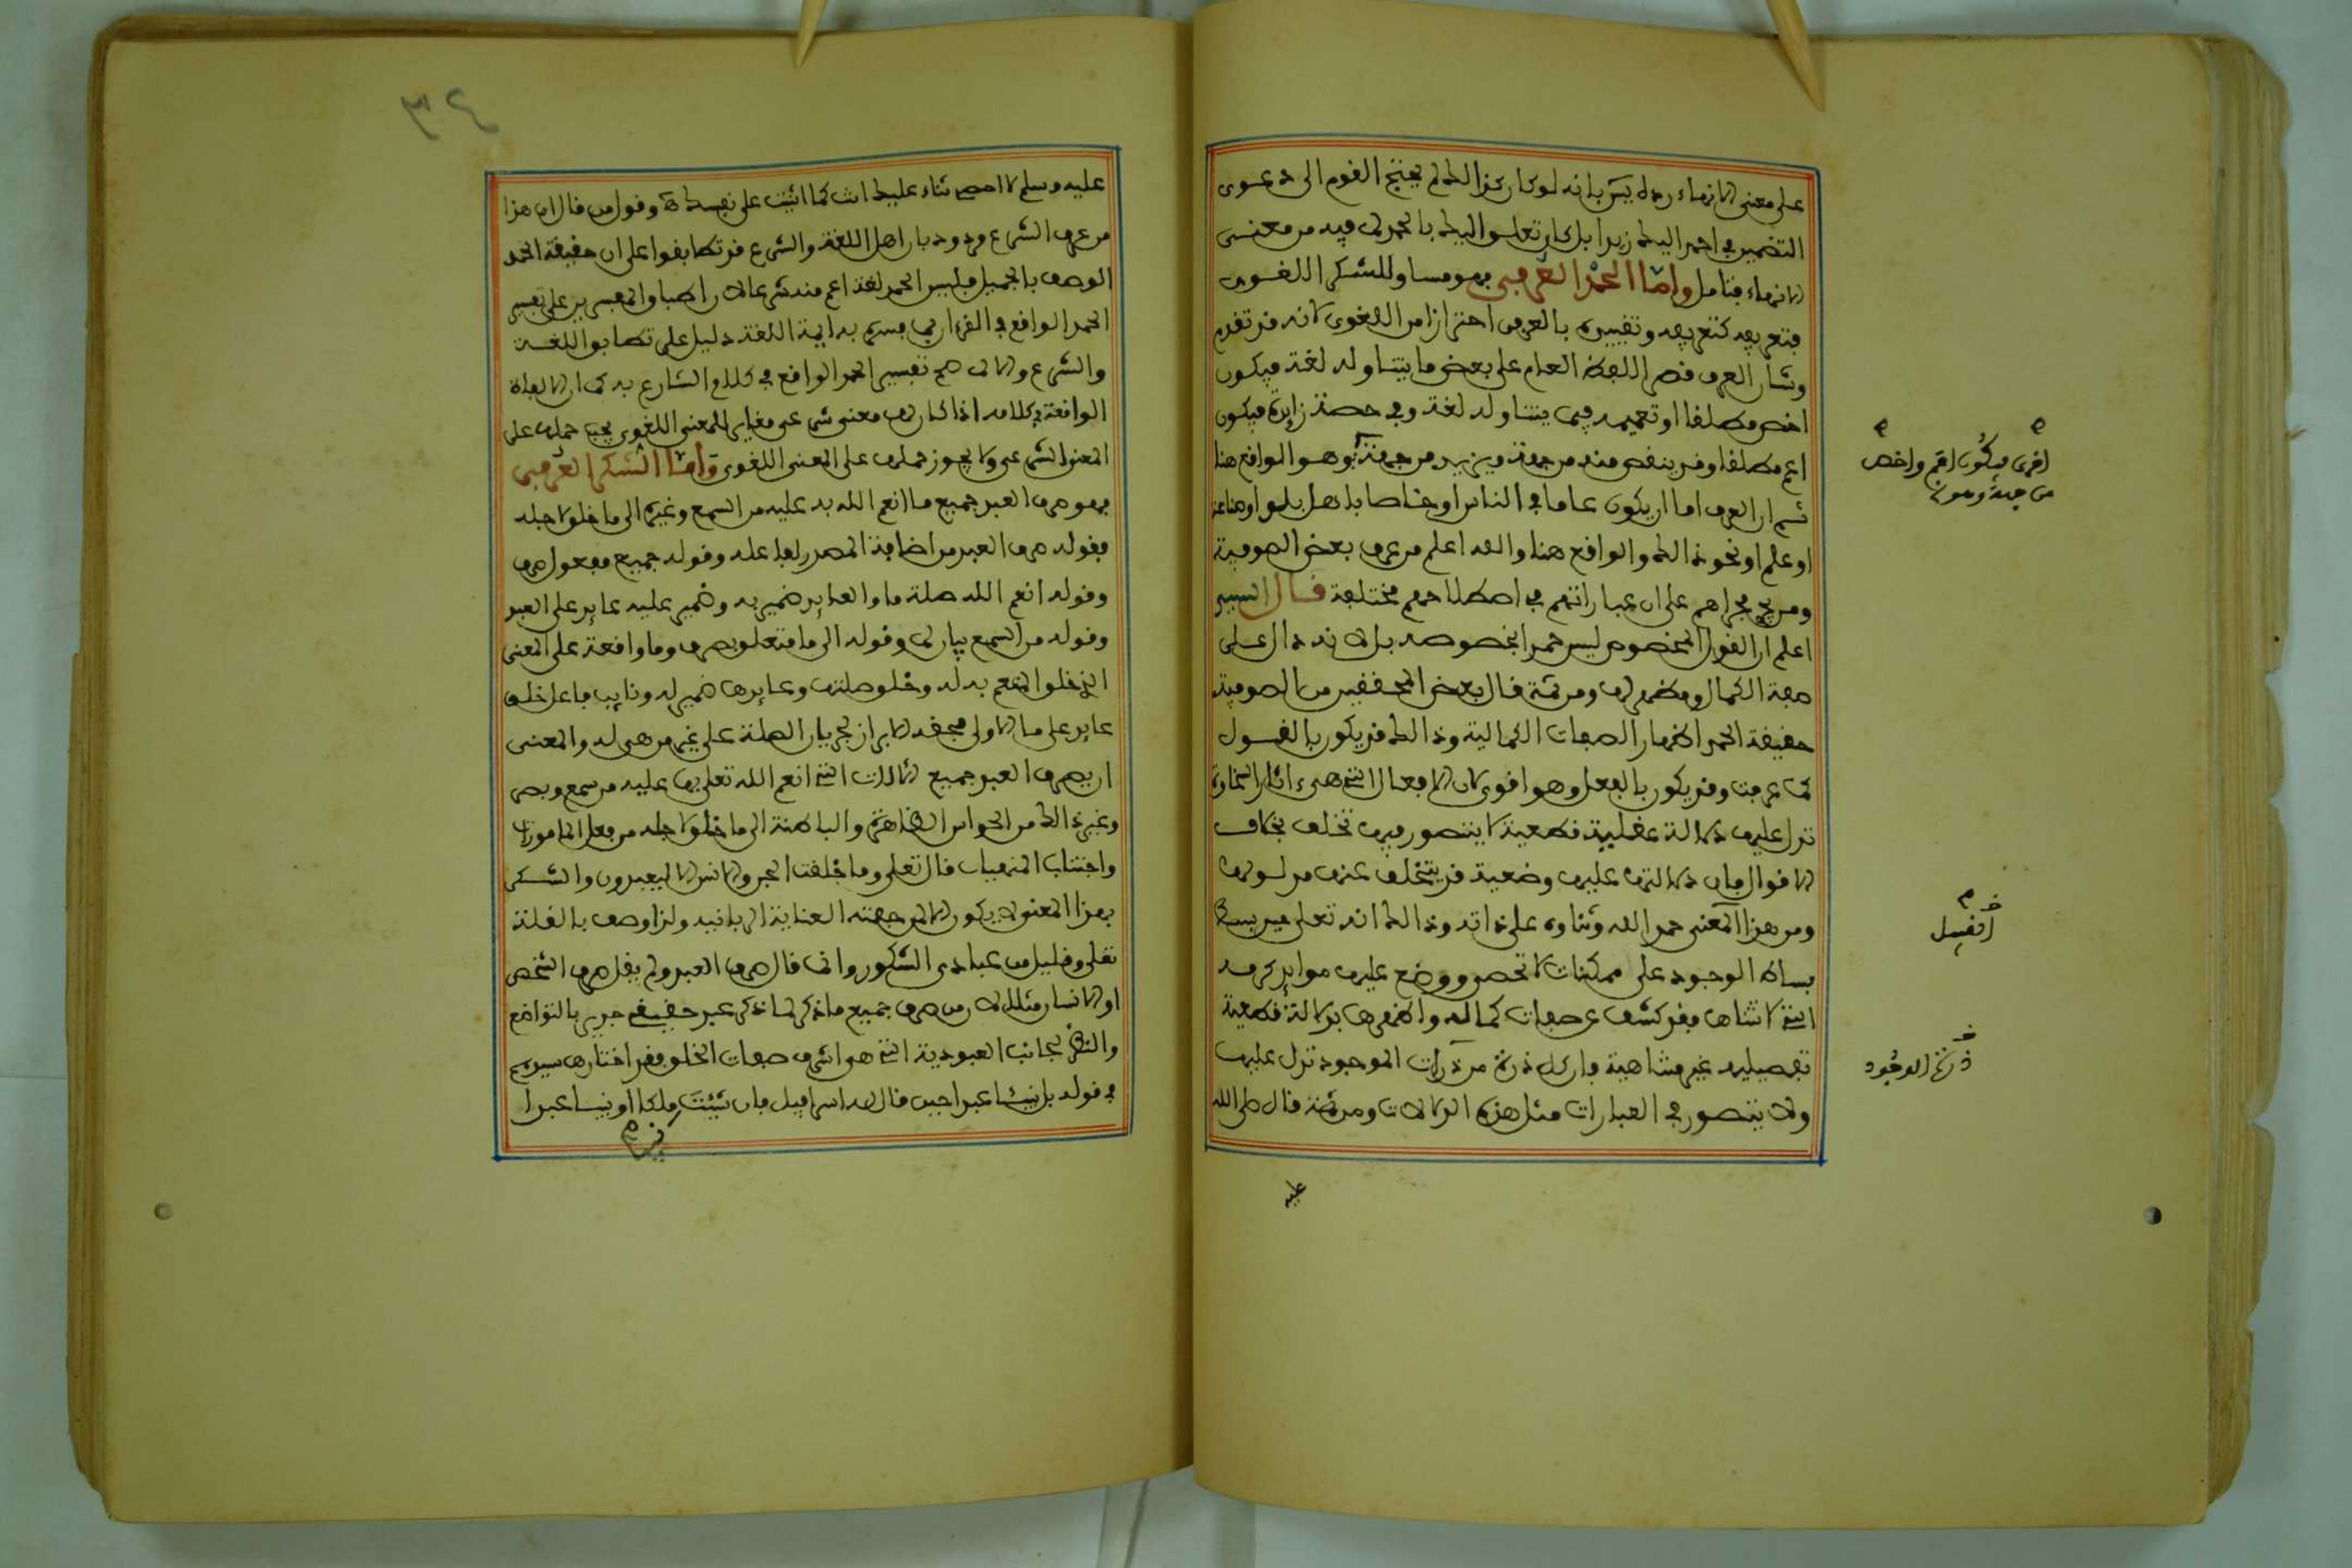 على معنى الانهاء رده يس بانه لو كان كذالك لم يحتج القوم الى دعوى
التضمين في احمد اليك زيدا بل كان تعلق اليك بالحمد لما فيه من معنى
الانهاء فتامل واما الحمد العرفي فهو مساو للشكر اللغوى
فتعريفه كتعريفه وتقييده بالعرفى احترازا من اللغوى لانه قد تقدم
وشان العرف قصر اللفظ العام على بعض ما يتناوله لغة فيكون
اخص مطلقا او تعميمه فيما يتناوله لغة وفي حصة زايدة فيكون
اعم مطلقا وقد ينقص منه من جهة ويزيد من جهة وهو الواقع هنا
ثم ان العرف اما ان يكون عاما في الناس او خاصا باهل بلد او صناعة
او علم او نحو ذالك والواقع هنا والله اعلم من عرف بعض الصوفية
ومن نحى مجراهم على ان عباراتهم في اصطلاحهم مختلفة قال السيد
اعلم ان القول المخصوص ليس حمدا بخصوصه بل لانه دال على
صفة الكمال ومظهر لها ومن ثمة قال بعض المحققين من الصوفية
حقيقة الحمد اظهار الصفات الكمالية وذالك قد يكون بالقول
كما عرفت وقد يكون بالفعل وهو اقوى لان الافعال التي هى ءاثار السخاوة
تدل عليها دلالة عقلية قطعية لا يتصور فيها تخلف بخلاف
الاقوال فان دلالتها عليها وضعية قد يتخلف عنها مدلولها
ومن هذا المعنى حمد الله وثناؤه على ذاته وذالك انه تعلى حين بسط
بساط الوجود على ممكنات لا تحصى ووضع عليها موايد كرمه
التي لا تتناها فقد كشف عن صفات كماله واظهرها بدلالة قطعية
تفصيلية غير متناهية فان كل ذرة من ذرات الموجود تدل عليها
ولا يتصور في العبارات مثل هذه الدلالات ومن ثمة قال صلى الله
اخرى فيكون اعم واخص
من جهة وهو
ذرات الوجود
عليه
٣٤
عليه وسلم لا احصي ثناء عليك انت كما اثنيت على نفسك وقول من قال ان هذا
من عرف الشرع مردود بان اهل اللغة والشرع قد تطابقوا على ان حقيقة الحمد
الوصف بالجميل فليس الحمد لغة اعم منه شرعا لان اطباق المفسرين على تفسير
الحمد الواقع في القرءان بما فسره به ايمة اللغة دليل على تطابق اللغة
والشرع والا لما صح تفسير الحمد الواقع في كلام الشارع به لما ان الالفاظ
الواقعة في كلامه اذا كان لها معنى شرعى مغاير للمعنى اللغوى يجب حملها على
المعنى الشرعى ولا يجوز حملها على المعنى اللغوى واما الشكر العرفي
فهو صرف العبد جميع ما انعم الله به عليه من السمع وغيره الى ما خلق لاجله
فقوله صرف العبد من اضافة المصدر لفاعله وقوله جميع مفعول صرف
وقوله انعم الله صلة ما والعايد ضمير به وضمير عليه عايد على العبد
وقوله من السمع بيان لما وقوله الى ما متعلق بصرف وما واقعة على المعنى
الذى خلق المنعم به له وخلق صلتها وعايدها ضمير له ونايب فاعل خلق
عايد على ما الاولى فحقه الابراز لجريان الصلة على غير من هى له والمعنى
ان يصرف العبد جميع الالات التي انعم الله تعلى بها عليه من سمع وبصر
وغير ذالك من الحواس الظاهرة والباطنة الى ما خلق لاجله من فعل المامورات
واجتناب المنهيات قال تعلى وما خلقت الجن والانس الا ليعبدون والشكر
بهذا المعنى لا يكون الا لمن حفته العناية الربانية ولذا وصف بالقلة
تعلى وقليل من عبادى الشكور وانما قال صرف العبد ولم يقل صرف الشخص
او الانسان مثلا لان من صرف جميع ما ذكر لما ذكر عبد حقيقي جدير بالتواضع
والنظر لجانب العبودية التي هى اشرف صفات الخلق فقد اختارها سيدهم
في قوله بل نبيئا عبدا حين قال له اسرافيل ان شئت ملكا او نبيئا عبدا